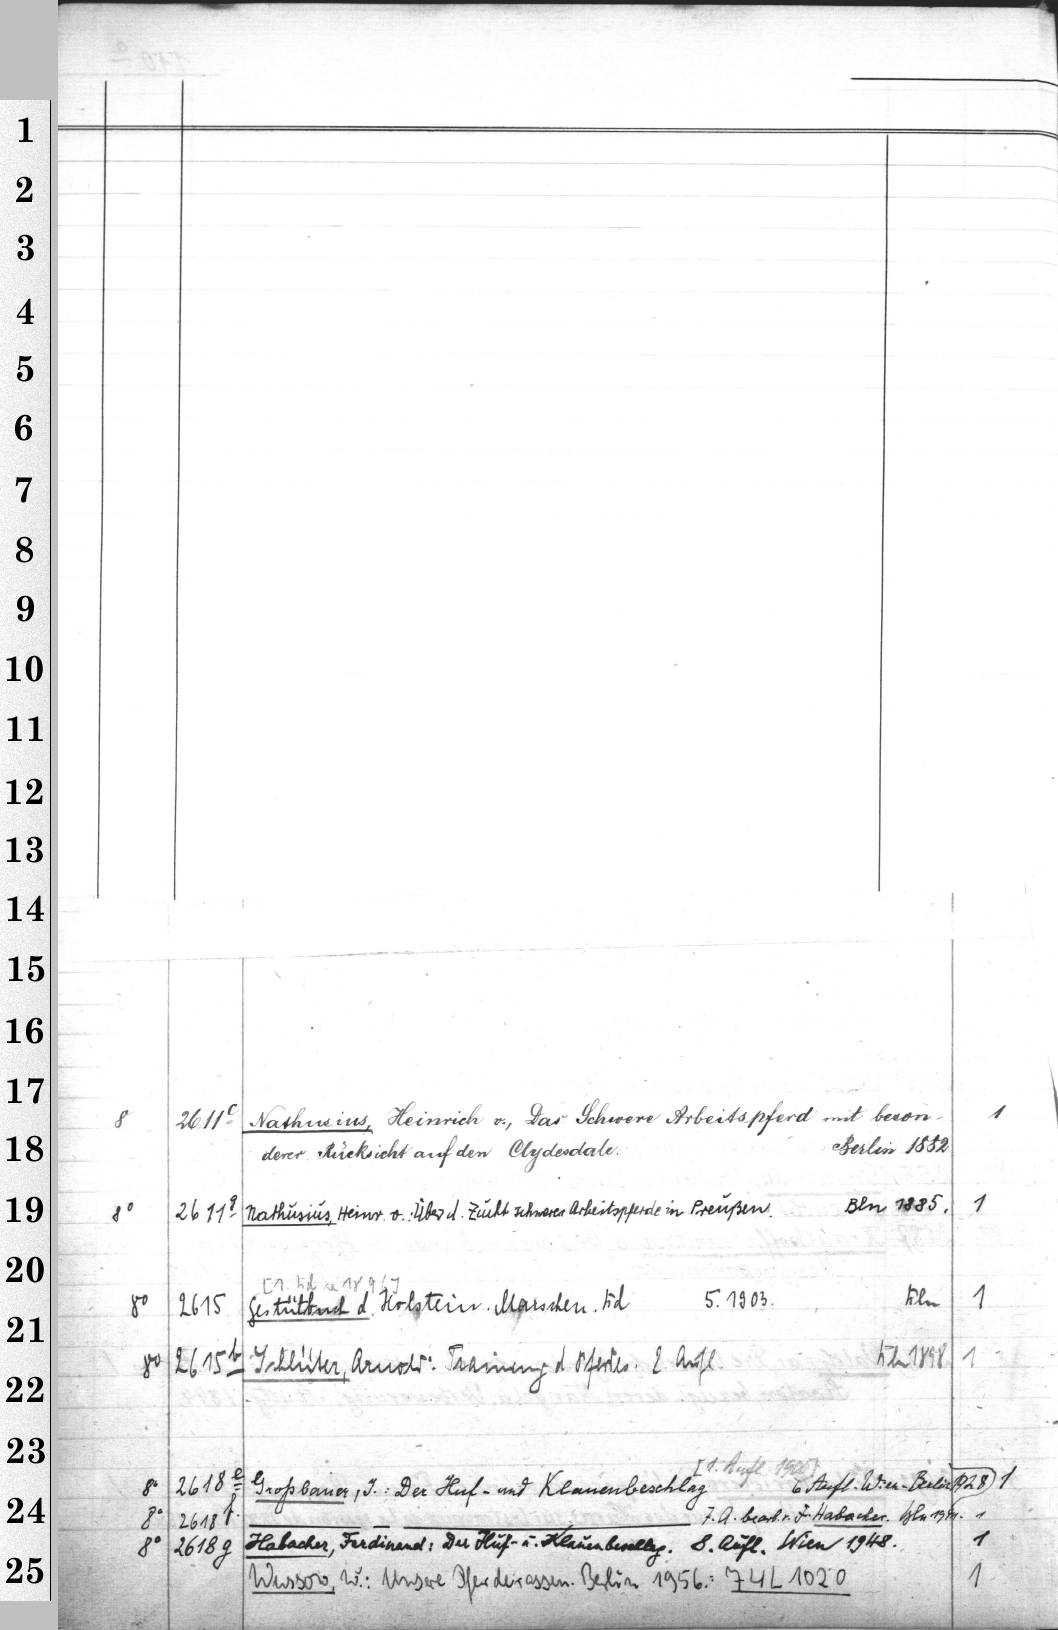 1
2
3
4
5
6
7
8
9
10
11
12
13
14
15
16
17
8 2611c Nathusius, Heinrich v., Das Schwere Arbeitspferd mit beson- 1
18
derer Rücksicht auf den Clydesdale. Berlin 1882
19
8° 2611g Nathusius, Heinr. v.: Über d. Zucht schwerer Arbeitspferde in Preußen. Bln 1885. 1
20
[1. Bd 1896]
8° 2615 Gestütbuch d. Holstein. Marschen. Bd 5. 1903. 1
21
8° 2615b Schlüter, Arnold: Training d Pferdes. 2 Aufl. Bln 1898 1
22
23
[1. Aufl. 1920]
8° 2618e Großbauer, J.: Der Huf- und Klauenbeschlag 6 Aufl. Wien-Berlin 1928 1
24
8° 2618f 7. A. bearb. v. F. Habacher. Bln 1
8° 2618g Habacher, Ferdinand: Der Huf- u. Klauenbeschlag. 8. Aufl. Wien 1948. 1
25
Wussow, W.: Unsere Pferderassen. Berlin 1956.: 74L1020 1